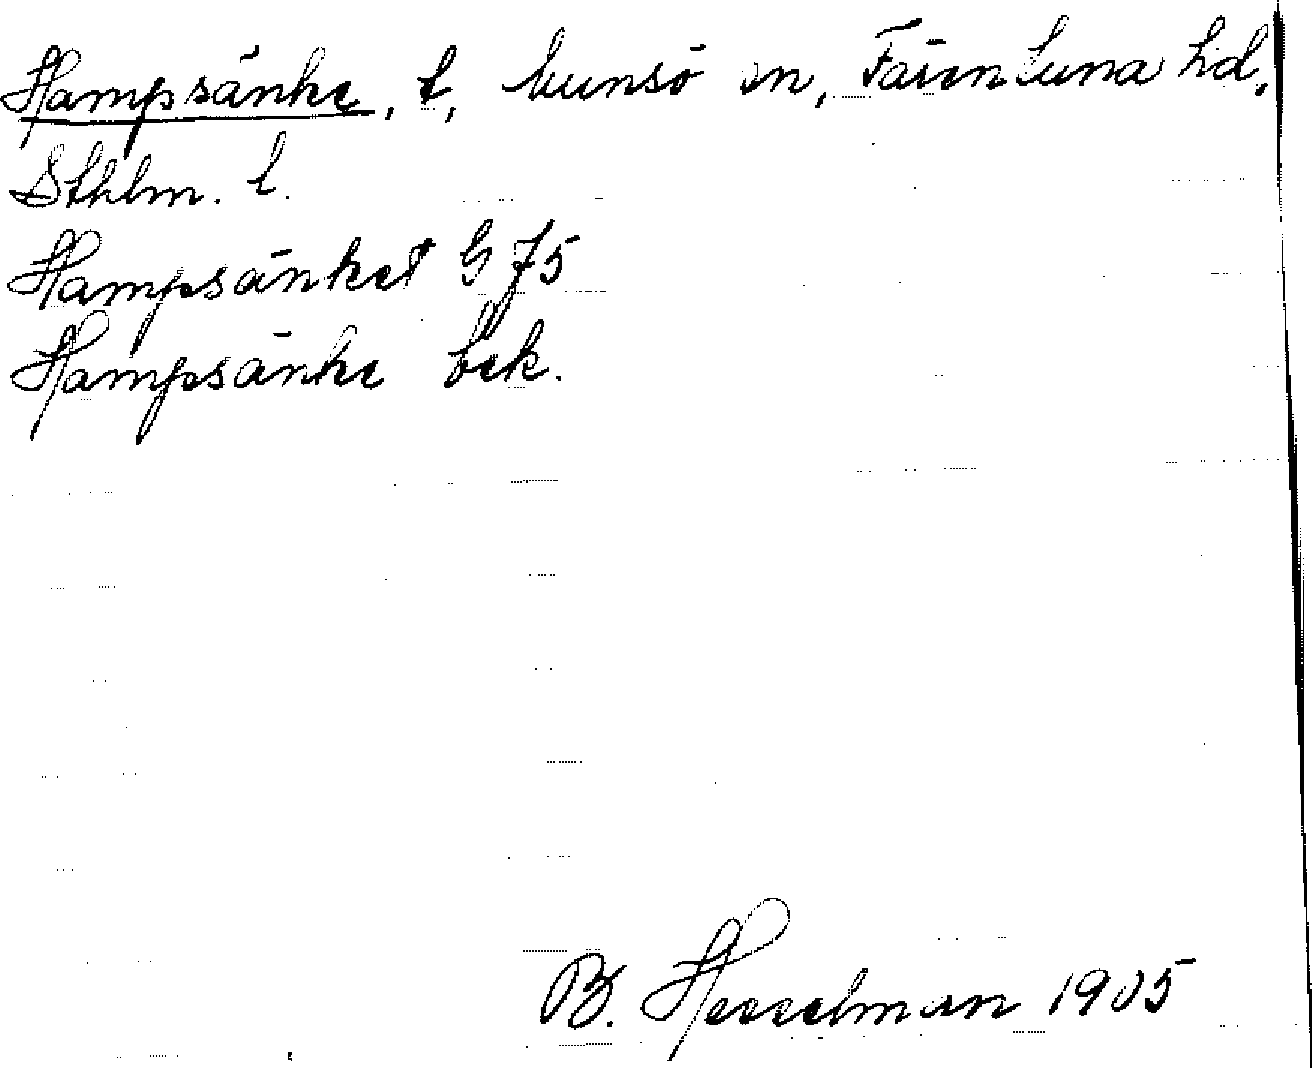 Hampsänke, t, Munsö sn, Färentuna hd,
Sthlm. l.
Hampsänket G 75
Hampsänke bek.
B. Hesselman 1905